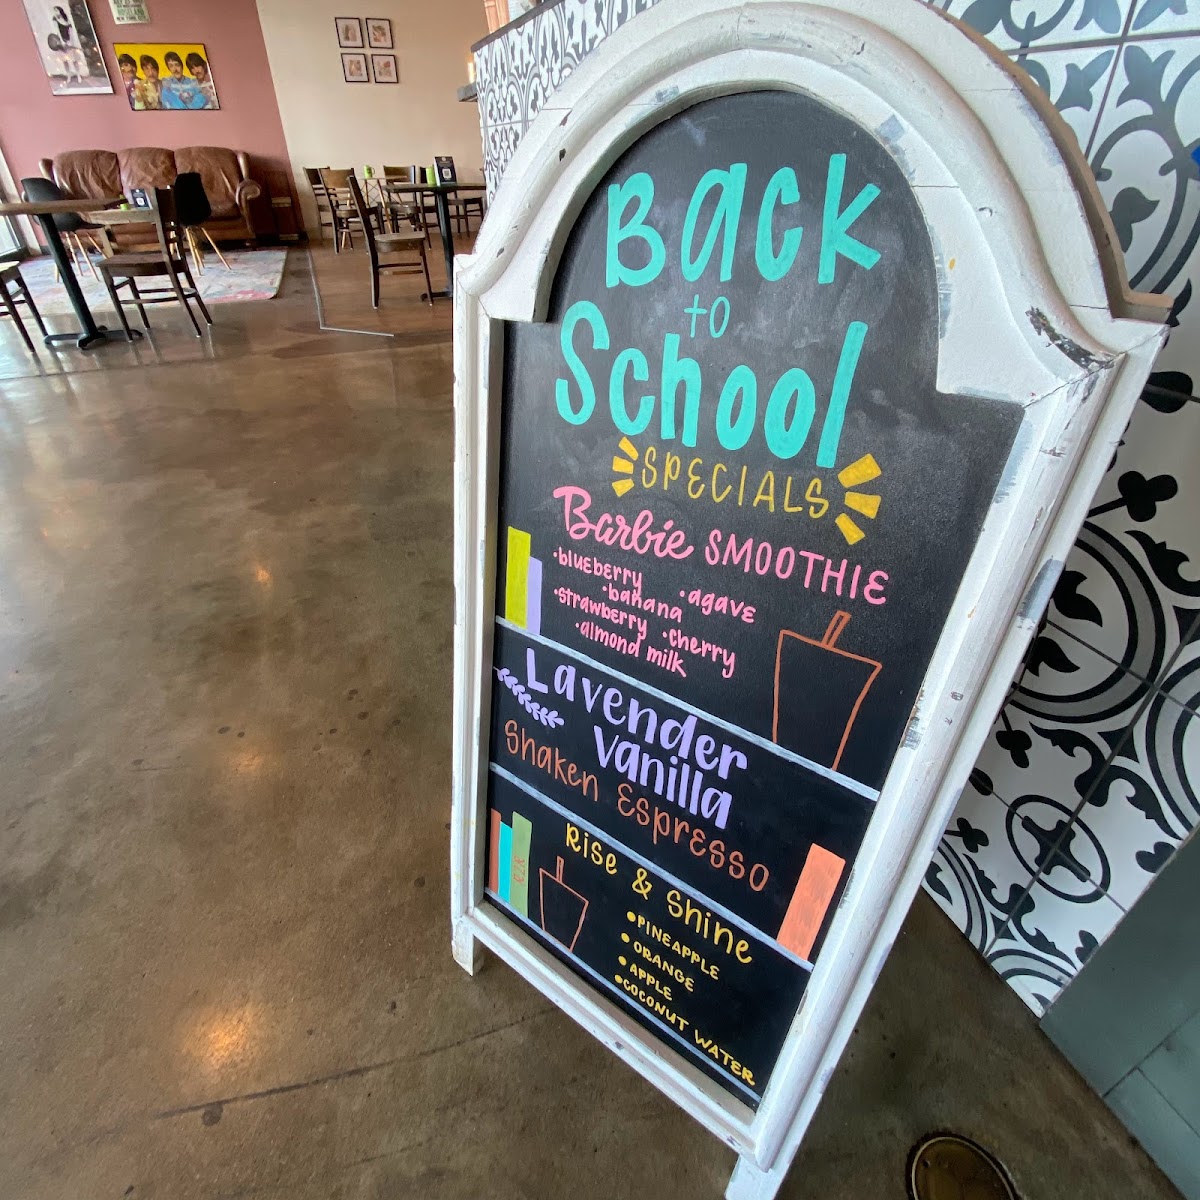 Back
to
School
SPECIALS
Barbie SMOOTHIE
•blueberry
•banana •agave
•strawberry •cherry
•almond milk
Lavender
vanilla
Shaken Espresso
Rise & Shine
•PINEAPPLE
•ORANGE
•APPLE
•COCONUT WATER